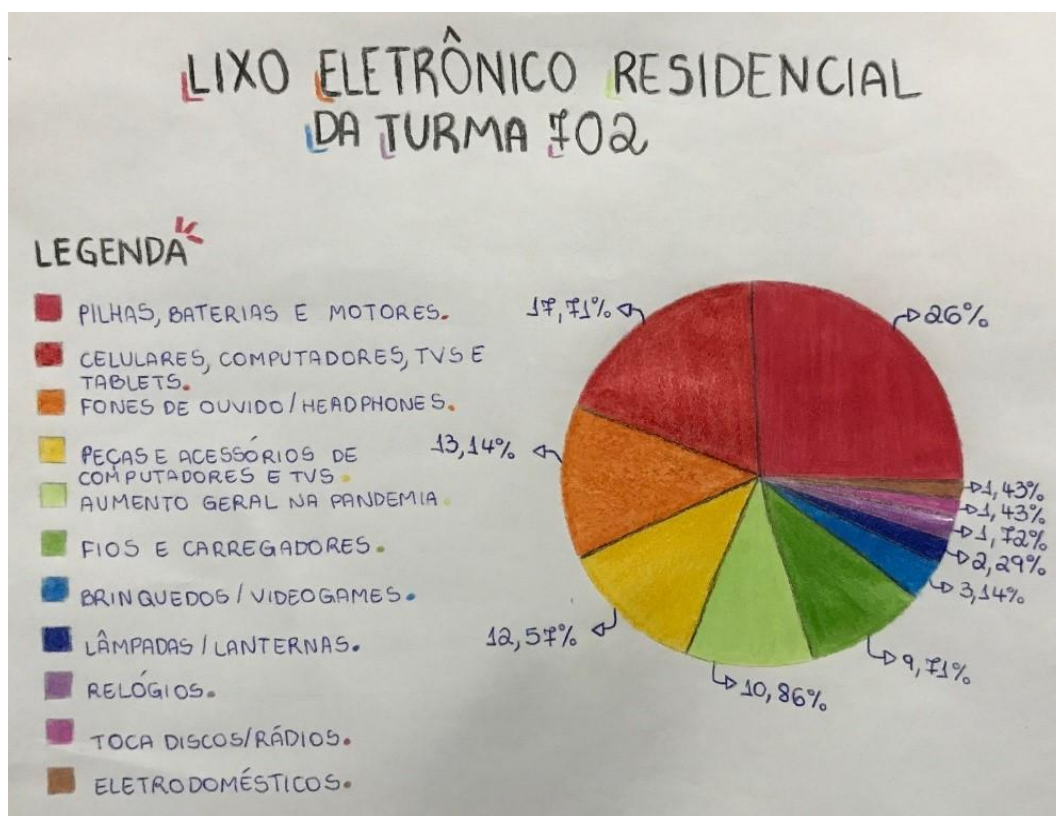 LIXO ELETRÔNICO RESIDENCIAL
DA TURMA 702
LEGENDA
PILHAS, BATERIAS E MOTORES.
CELULARES, COMPUTADORES, TVS E
TABLETS.
FONES DE OUVIDO/HEADPHONES.
PEÇAS E ACESSÓRIOS DE
COMPUTADORES E TVS.
AUMENTO GERAL NA PANDEMIA.
FIOS E CARREGADORES.
BRINQUEDOS/VIDEOGAMES.
LÂMPADAS/LANTERNAS.
RELÓGIOS.
TOCA DISCOS/RÁDIOS.
ELETRODOMÉSTICOS.
17,71%
26%
13,14%
1,43%
1,43%
1,72%
2,29%
3,14%
12,57%
9,71%
10,86%